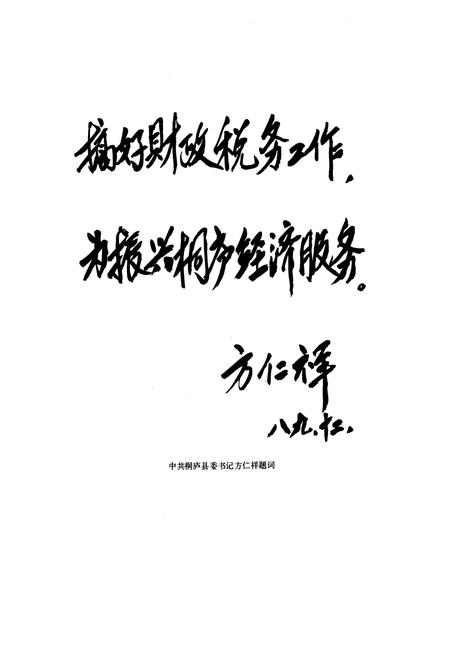 搞好财政税务工作,
为振兴桐庐经济服务。
方仁祥
八九、十二、
中共桐庐县委书记方仁祥题词